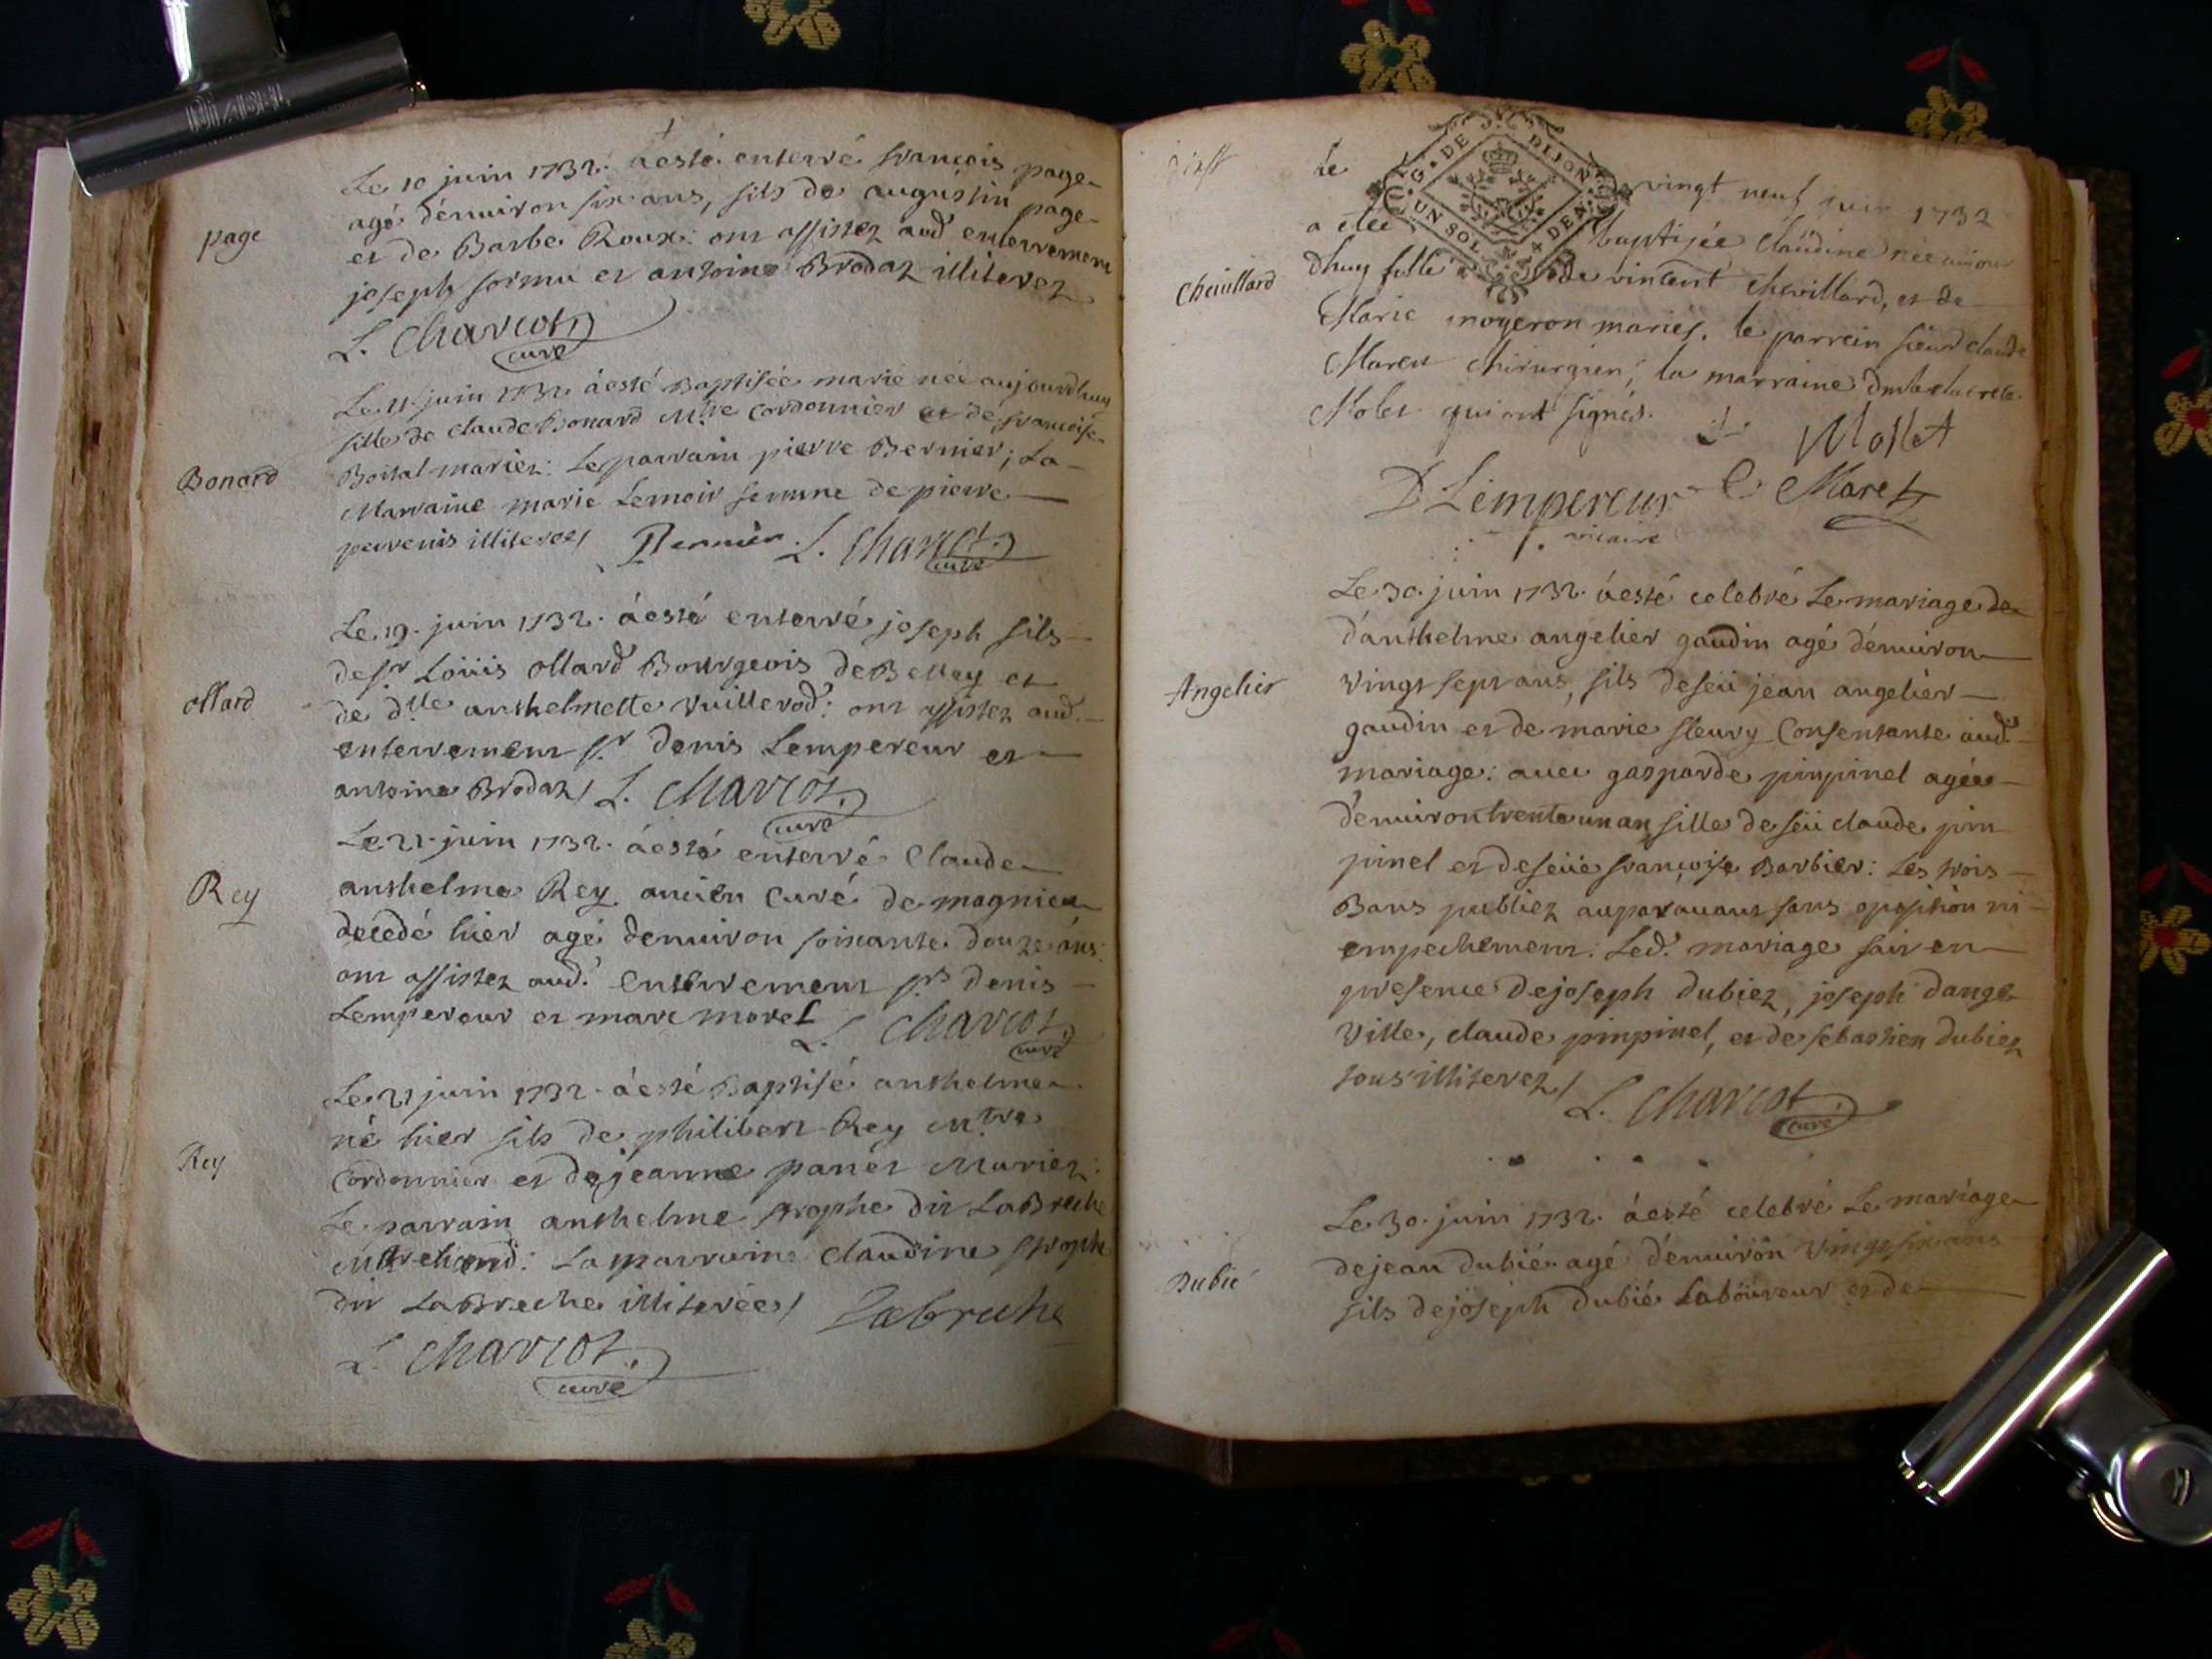 Le 10 juin 1732. a esté enterré françois page
agé d'enuiron six ans, fils de augustin page
page
et de Barbe Roux: ont assistez aud enterrement
joseph fornu et antoine Brodaz illiterez
L. Charcot
curé
Le 11 juin 1732 a esté Baptisée marie née aujourdhuy
fille de claude Bonard M.tre Cordonnier et de françoise
Bonard
Boital mariez: Le parrain pierre Bernier; La
Marraine marie Lemoir femme de pierre
illiterez/ Bernier. L. Charcot
curé
Le 19. juin 1732. a esté enterré joseph fils
de sr Loüis ollard Bourgeois de Belley et
ollard
de dlle anthelmette Vuillerod: ont assistez aud.
enterrement sr denis Lempereur et
antoine Brodaz/ L. Charcot
curé
Le 21. juin 1732. a esté enterré Claude
Rey
anthelme Rey ancien curé de magnieu
decedé hier agé denuiron soixante douze ans:
ont assistez aud. enterrement srs denis
Lempereur et marc morel L. Charcot
curé
Le 21 juin 1732. a esté Baptisé anthelme
né hier fils de philibert Rey M.tre
Rey
Cordonnier et de jeanne panet Mariez:
Le parrain anthelme strophe dit La Breche
Marchand: La marraine Claudine strophe
dit La Breche illiterée/ Labreche
L. Charcot
curé
G. DE DIJON
UN SOL 4 DEN.
Le vingt neuf juin 1732
a eteé baptisée Claudine née aujour
Cheuillard
dhuy fille de vincent cheuillard, et de
Marie moyeron mariés. le parrein sieur claude
Maret chirurgien; la marraine
Molet qui ont signés.
Mollet
D Lempereur C Maret
vicaire
Le 30. juin 1732. a esté celebré Le mariage de
d'anthelme angelier gaudin agé d'enuiron
Angelier
Vingt sept ans, fils de feü jean angelier
gaudin et de marie fleury Consentante aud.
mariage: auec gasparde pinpinel agée
d'enuiron trente un an fille de feü claude pin
pinel et de feüe françoise Barbier: Les trois
Bans publiez auparauant sans oposition ni
empechement: Led. mariage fait en
presence de joseph dubiez, joseph dange
ville, claude pinpinel, et de sebastien dubiez
tous illiterez/ L. Charcot
curé
Le 30. juin 1732. a esté celebré Le mariage
de jean dubié agé d'enuiron vingt six ans
Dubié
fils de joseph dubié Laboureur et de